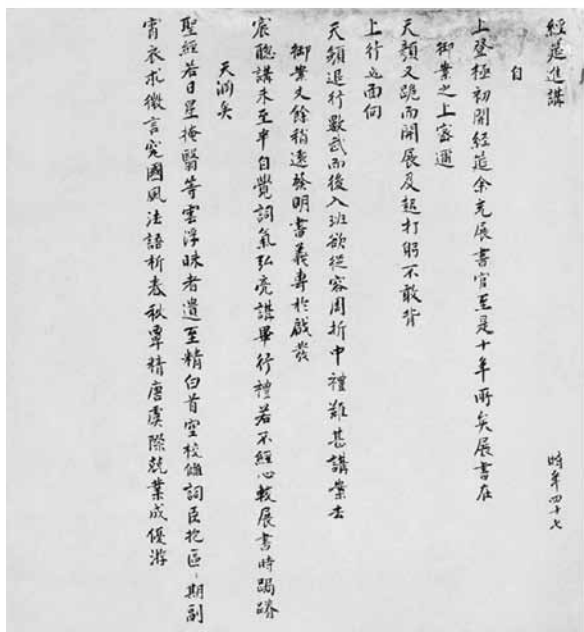 經筵進講 時年四十七
自
上登極初開經筵余充展書官至是十年所矣展書在
御案之上密邇
天顏又跪而開展及起打躬不敢背
上行也面向
天顏退行數武而後入班欲從容周折中禮難甚講案去
御案丈餘稍遠發明書義專於啟發
宸聰講未至半自覺詞氣弘亮講畢行禮若不經心較展書時跼蹐
天淵矣
聖經若日星掩翳等雲浮昧者遺至精白首空校讎詞臣抱區區期副
宵衣求微言究國風法語析春秋覃精唐虞際兢業成優游